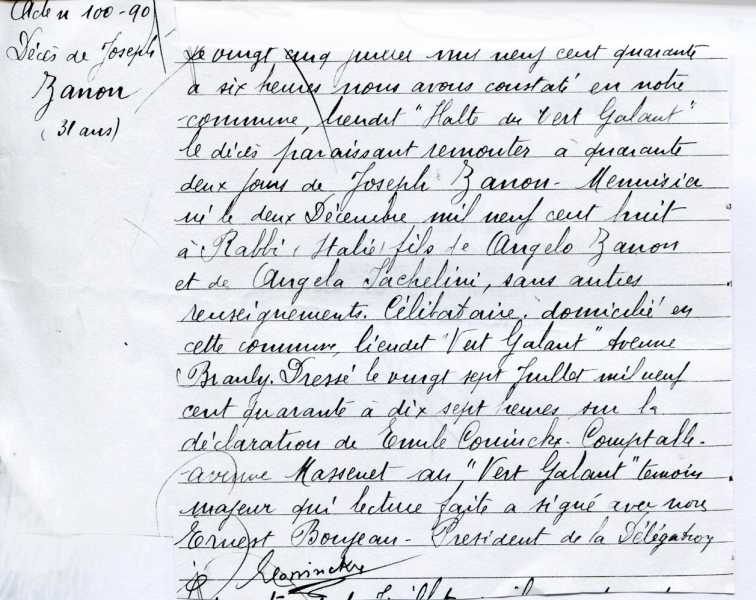 Acte n 100-90
Décès de Joseph
Zanon
(31 ans)
Le vingt cinq juillet mil neuf cent quarante
à six heures nous avons constaté en notre
commune, lieudit "Halte du Vert Galant"
le décès paraissant remonter à quarante
deux jours de Joseph Zanon - Menuisier
né le deux Décembre mil neuf cent huit
à Rabbi (Italie) fils de Angelo Zanon
et de Angela Iachelini, sans autres
renseignements. Célibataire, domicilié en
cette commune, lieudit "Vert Galant" Avenue
Branly. Dressé le vingt sept Juillet mil neuf
cent quarante à dix sept heures sur la
déclaration de Emile Coninckx - Comptable -
avenue Massenet au "Vert Galant" temoin
majeur qui lecture faite a signé avec nous
Ernest Boujean - Président de la Délégation
Coninckx